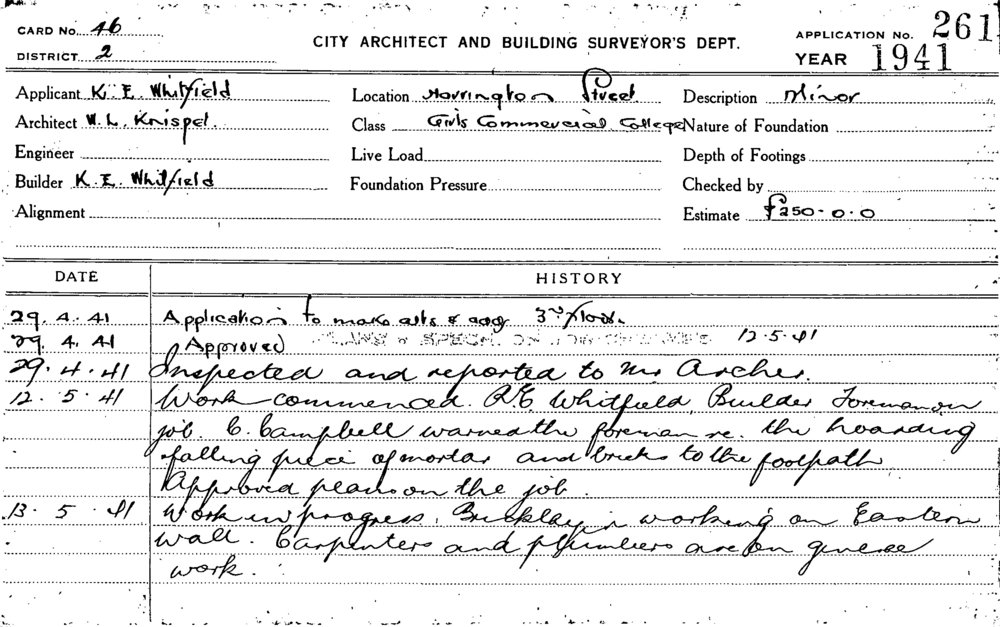 CARD No. 46
DISTRICT 2
CITY ARCHITECT AND BUILDING SURVEYOR'S DEPT.
APPLICATION No. 261
YEAR 1941
Applicant K. E. Whitfield Location Harrington Street Description Minor
Architect W. L. Knispel. Class Girls Commercial College Nature of Foundation
Engineer Live Load Depth of Footings
Builder K. E. Whitfield Foundation Pressure Checked by
Alignment Estimate £250-0-0
DATE HISTORY
29. 4. 41 Application to make alts & 3rd floor.
29. 4. 41 Approved PLANS & SPECN. ON 12.5.41
29. 4. 41 Inspected and reported to Mr Archer.
12. 5. 41 Work commenced. Whitfield, Builder Foreman on
job. C. Campbell warned the foreman re. the hoarding
falling piece of mortar and bricks to the footpath
Approved plans on the job.
13. 5. 41 Work in progress. working on Eastern
wall. Carpenters and plumbers are on general
work.